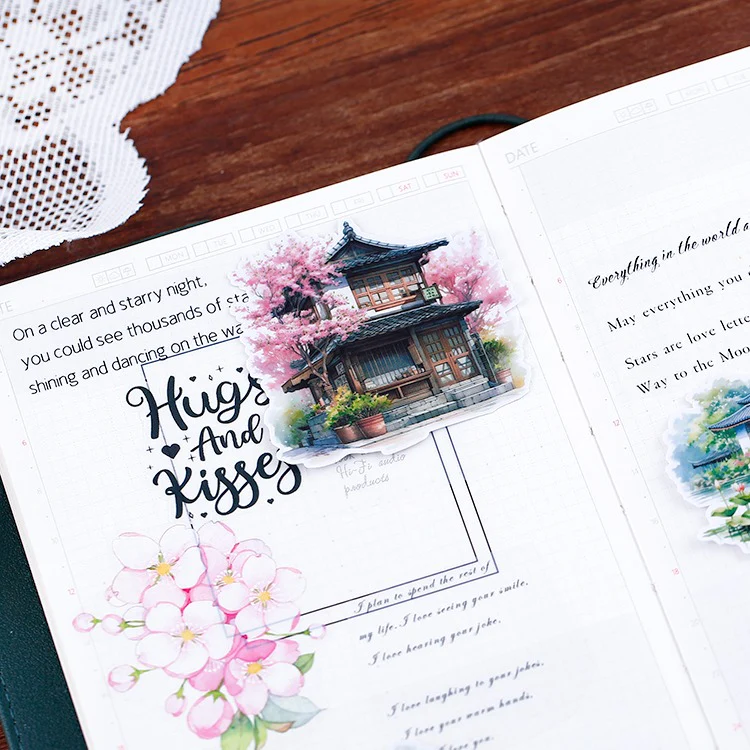 TE
MON TUE WED THU Fri SAT SUN
On a clear and starry night,
you could see thousands of sta
shining and dancing on the wa
Hugs
And
Kisses
Hi-Fi audio
produces
I plan to spend the rest of
my life. I love seeing your smile.
I love hearing your joke.
I love laughing to your jokes.
I love your warm hands.
I love you.
6
DATE
MON
Everything in the world a
May everything you
Stars are love lette
Way to the Moo
12
18
24